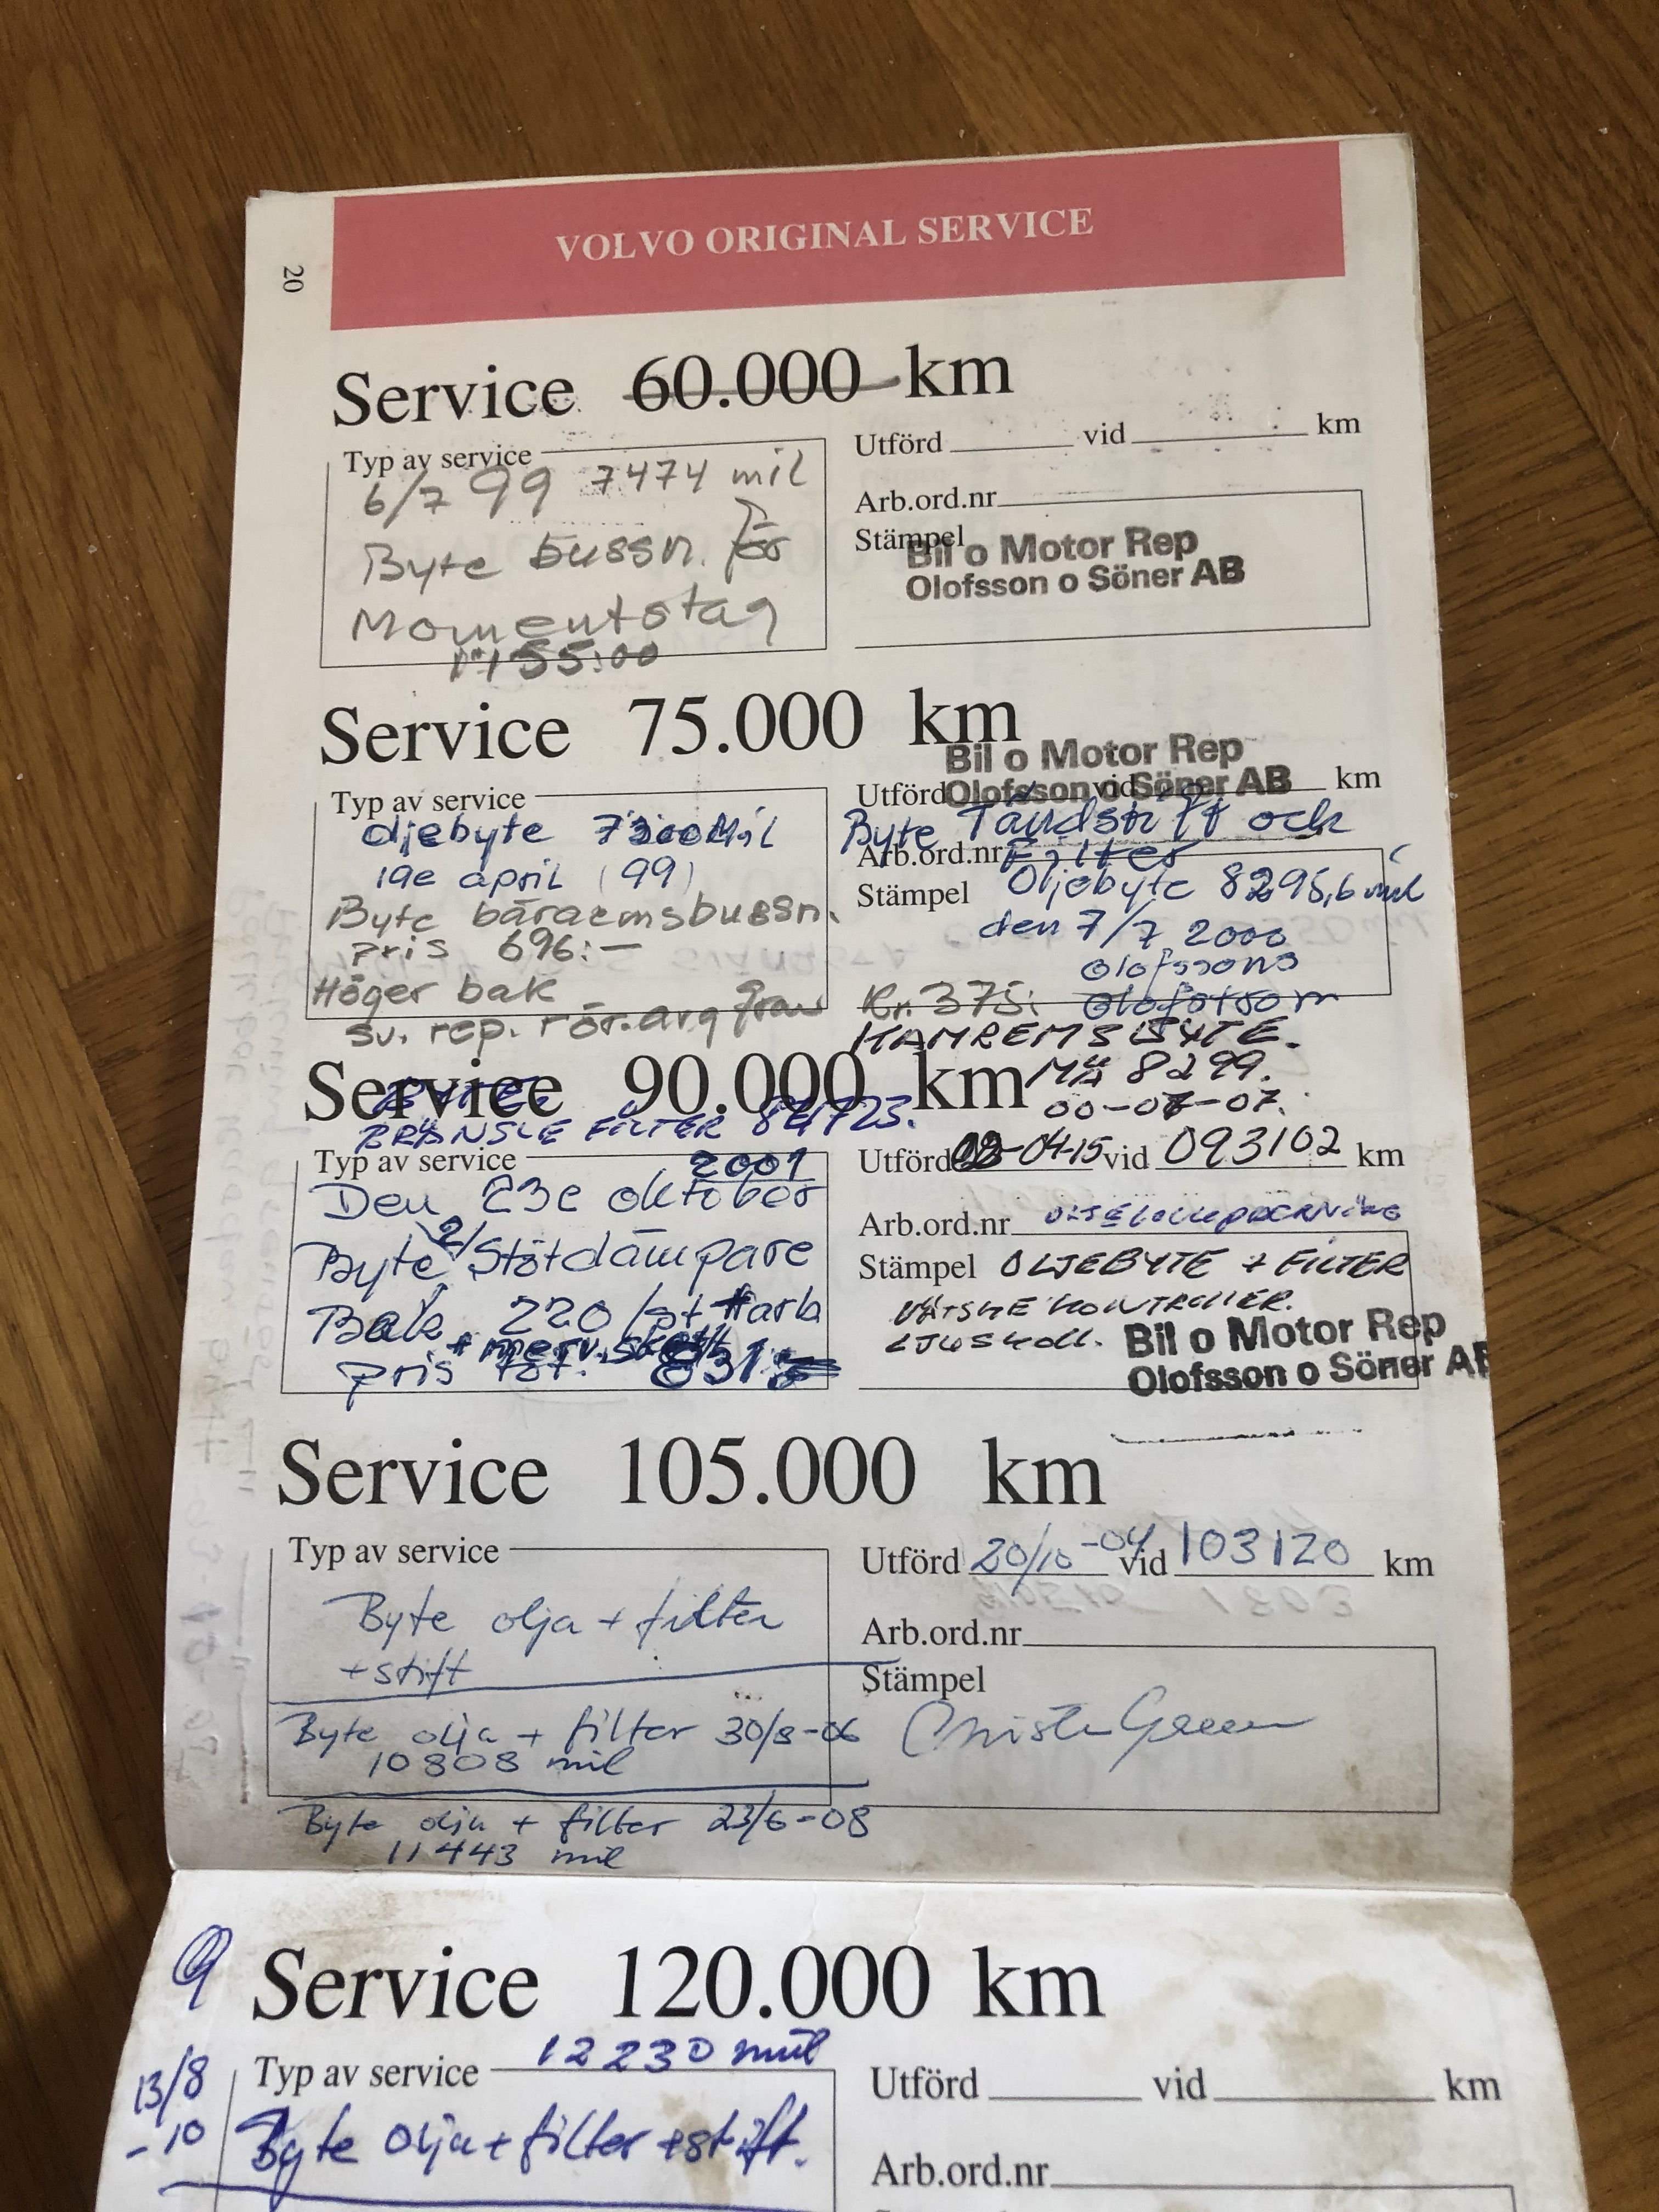 20
VOLVO ORIGINAL SERVICE
Service 60.000 km
Typ av service
6/7 99 7474 mil
Byte bussn. för
Momentstag
155:00
Utförd vid km
Arb.ord.nr
Stämpel
Bil o Motor Rep
Olofsson o Söner AB
Service 75.000 km
Typ av service
oljebyte 7300 Mil
19e april (99)
Byte bärarmsbussn.
pris 696:-
Höger bak
sv. rep. rör. avg fram
Bil o Motor Rep
Olofsson o Söner AB
Utförd vid km
Byte Tändstift och
Arb.ord.nr Filter
Stämpel Oljebyte 8295,6 mil
den 7/7 2000
Olofssons
Kr. 375:
KAMREMSBYTE.
MÄ 8299.
Service 90.000 km
BRÄNSLE FILTER
Typ av service 2001
Den 23e oktober
Byte 2 Stötdämpare
Bak 220 /st + arb
pris tot. 831:
Utförd -04-15 vid 093102 km
Arb.ord.nr
Stämpel OLJEBYTE + FILTER
VÄTSKE KONTROLLER.
LJUSKOLL.
Bil o Motor Rep
Olofsson o Söner AB
Service 105.000 km
Typ av service
Byte olja + filter
+ stift
Byte olja + filter 30/8-06
10808 mil
Byte olja + filter 23/6-08
11443 mil
Utförd 20/10 -04 vid 103120 km
Arb.ord.nr
Stämpel
Service 120.000 km
12230 mil
Typ av service
13/8
-10
Byte olja + filter + stift.
Utförd vid km
Arb.ord.nr